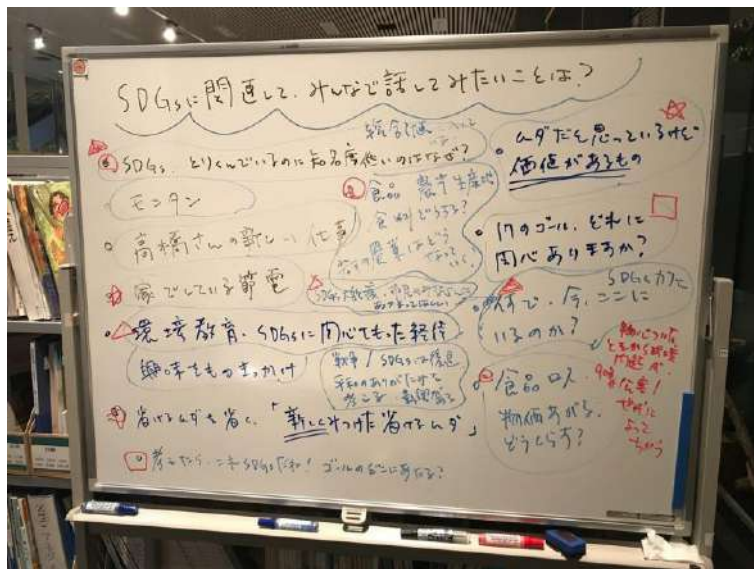 SDGsに関連して、みんなで話してみたいことは?
SDGs、とりくんでいるのに知名度低いのはなぜ?
モンタン
高橋さんの新しい仕事
家でしている節電
環境教育、SDGsに関心をもった経緯
興味をもつきっかけ
省けるムダを省く、「新しくみつけた省けるムダ」
考えたら、これSDGsだわ! ゴールのどこにあたる?
食品 農業生産地
食料どうする?
SDGs大教室
戦争/SDGsは後退
平和のありがたさを
考える
ムダだと思っているけど
価値があるもの
17のゴール、どれに
関心ありますか?
SDGsカフェ
何で、今、ここに
いるのか?
食品ロス
物価あがる、
どうくらす?
物心ついた
ときから環境
問題が
世代に
よって
ちがう